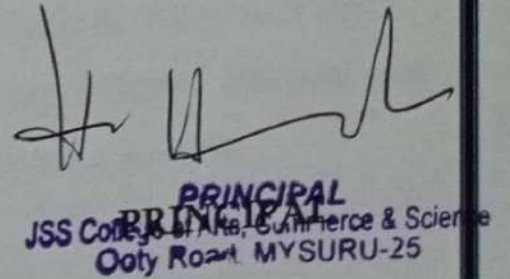 PRINCIPAL
PRINCIPAL
JSS College of Arts, Commerce & Science
Ooty Road, MYSURU-25